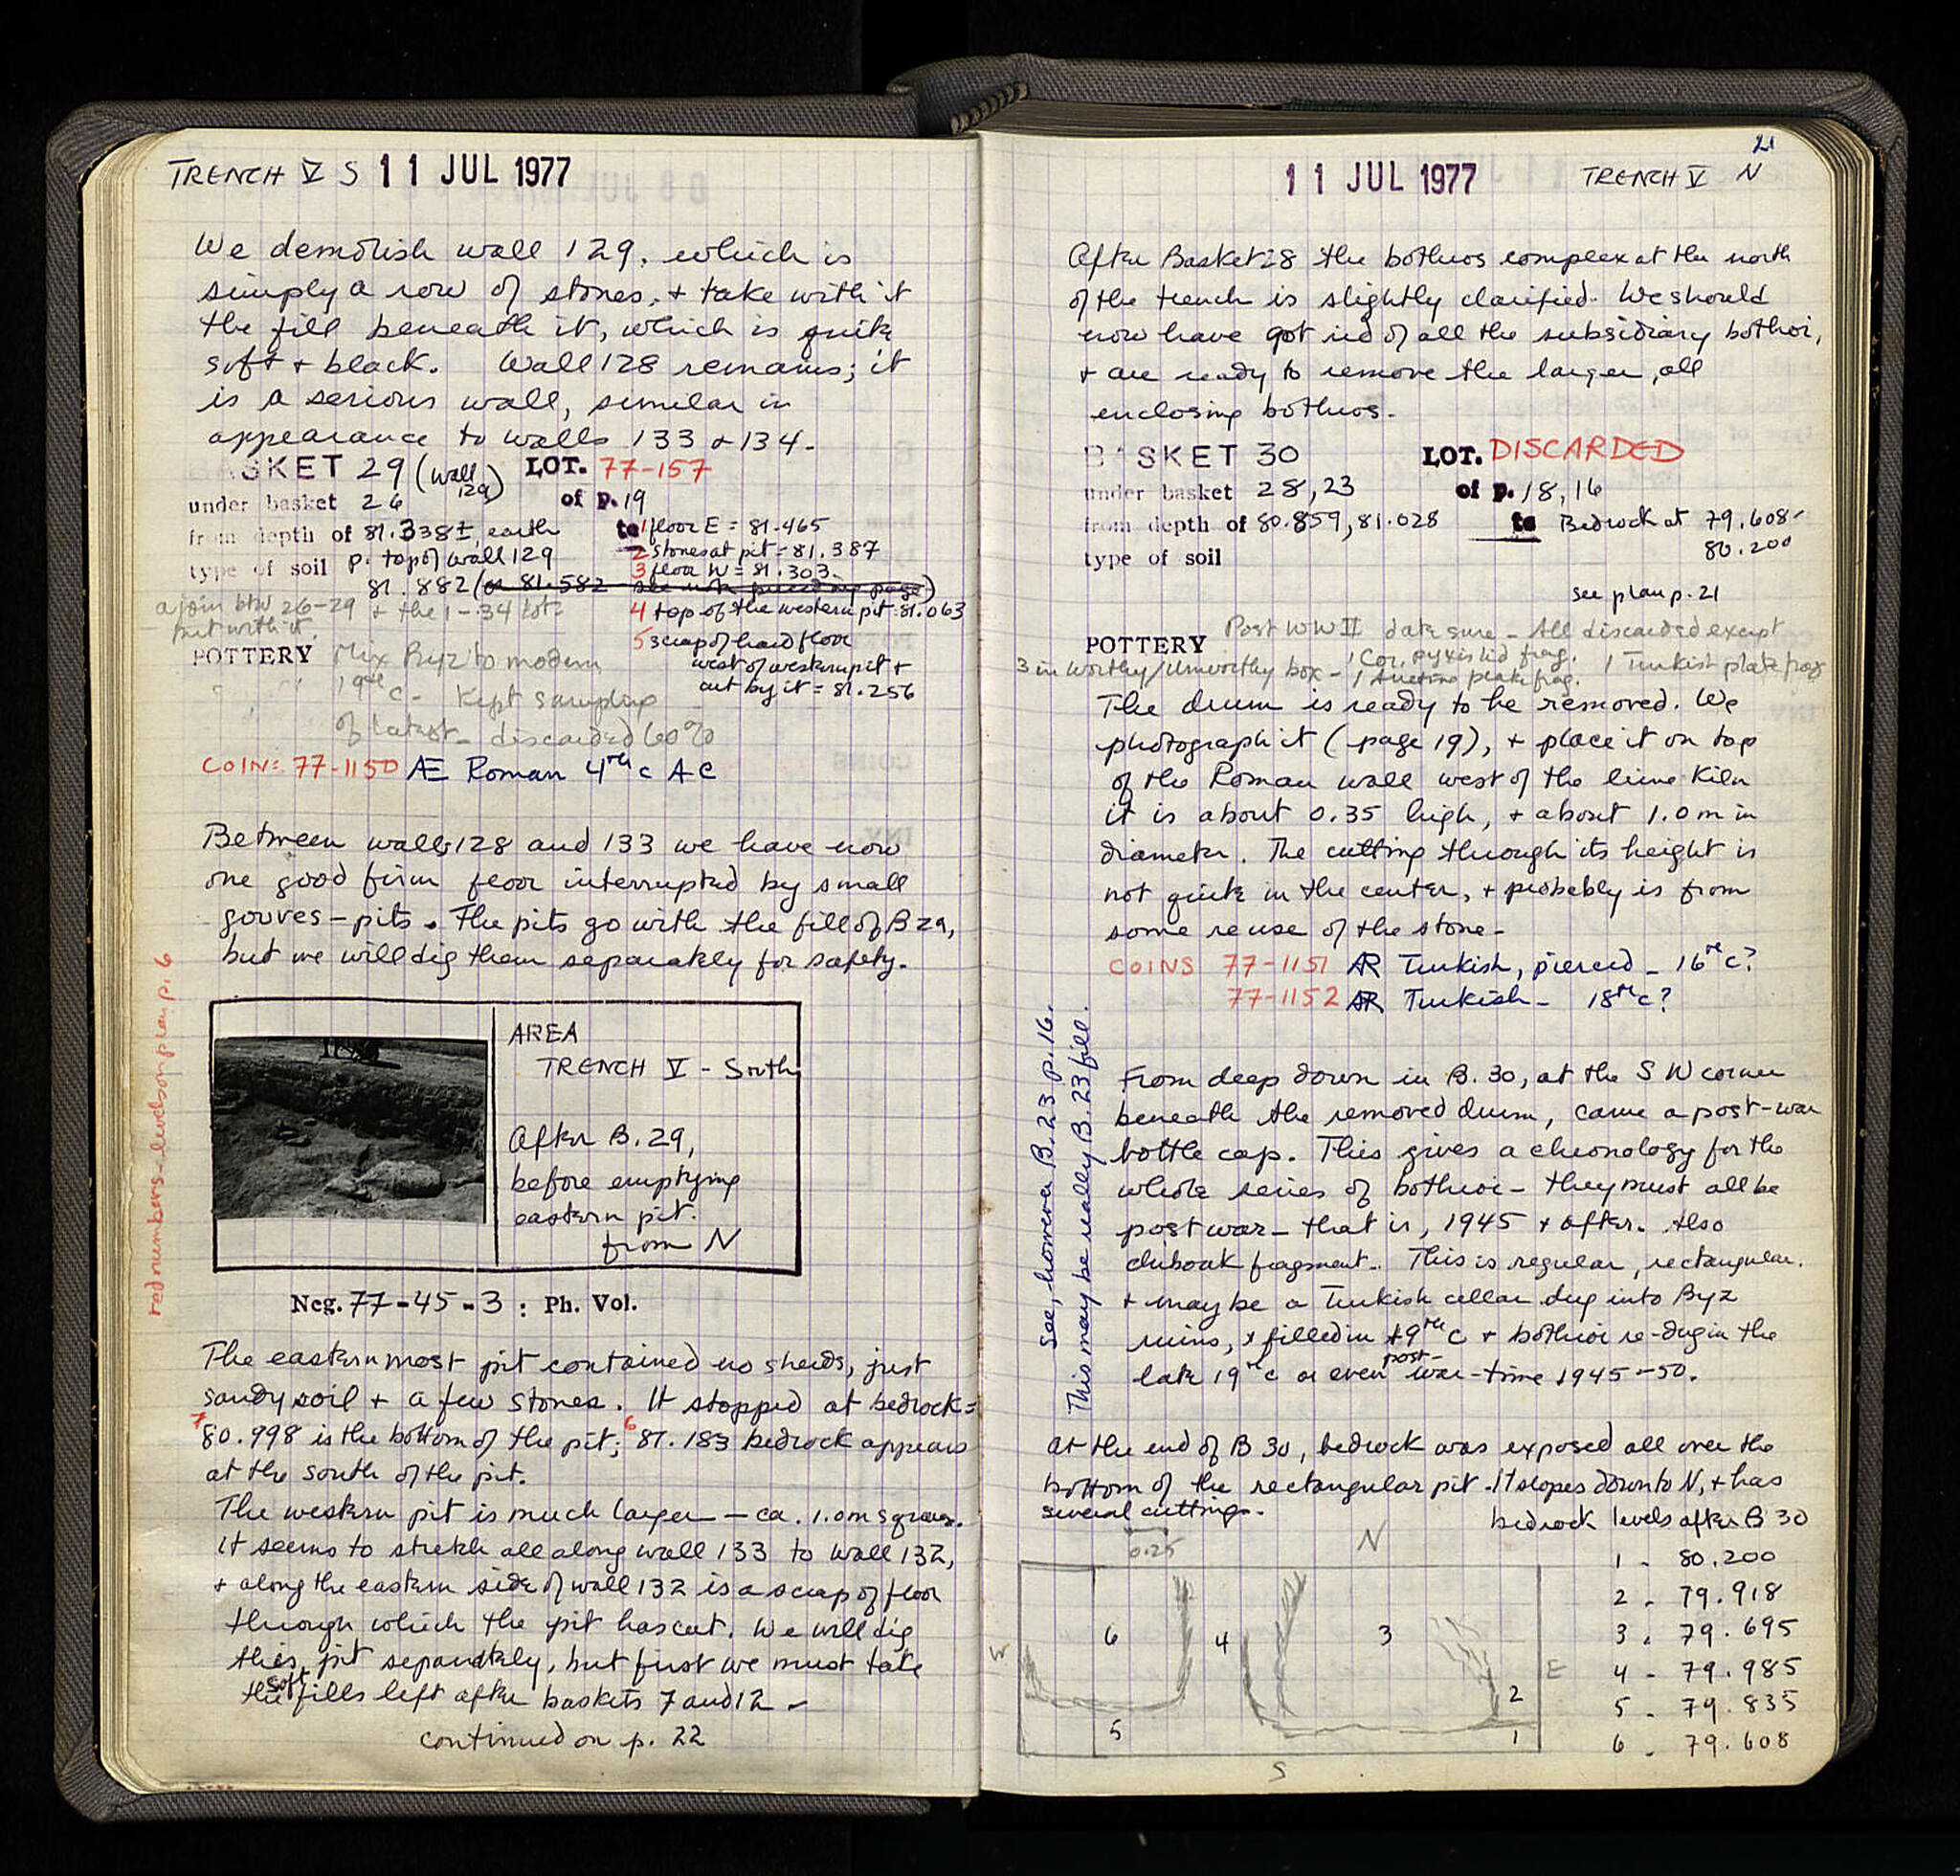 TRENCH V S 11 JUL 1977
We demolish wall 129, which is
simply a row of stones, + take with it
the fill beneath it, which is quite
soft + black. Wall 128 remains; it
is a serious wall, similar in
appearance to walls 133 & 134.
BASKET 29 (wall 129) LOT. 77-157
under basket 26 of p. 19
from depth of 81.338±, earth to 1 floor E = 81.465
type of soil p. top of wall 129 2 stones at pit = 81.387
81.882 (or 81.582 see note preceding page) 3 floor W = 81.303
a join btw 26-29 + the 1-34 lots 4 top of the western pit = 81.063
but with it. 5 scrap of hard floor
west of western pit +
cut by it = 81.256
POTTERY Mix Byz to modern
19th c - Kept sampling
of latest - discarded 60%
COIN: 77-1150 Æ Roman 4th c AC
Between walls 128 and 133 we have now
one good firm floor interrupted by small
gouves - pits. The pits go with the fill of B 29,
but we will dig them separately for safety.
AREA
TRENCH V - South
After B. 29,
before emptying
eastern pit.
from N
Neg. 77-45-3 : Ph. Vol.
red numbers - levels on plan p. 6
The easternmost pit contained no sherds, just
sandy soil + a few stones. It stopped at bedrock =
7 80.998 is the bottom of the pit; 6 81.183 bedrock appears
at the south of the pit.
The western pit is much larger - ca. 1.0 m square.
It seems to stretch all along wall 133 to wall 132,
+ along the eastern side of wall 132 is a scrap of floor
through which the pit has cut. We will dig
this pit separately, but first we must take
the soft fills left after baskets 7 and 12 -
continued on p. 22
21
11 JUL 1977 TRENCH V N
After Basket 28 the bothros complex at the north
of the trench is slightly clarified. We should
now have got rid of all the subsidiary bothroi,
+ are ready to remove the larger, all
enclosing bothros.
BASKET 30 LOT. DISCARDED
under basket 28, 23 of p. 18, 16
from depth of 80.859, 81.028 to Bedrock at 79.608-
80.200
type of soil
see plan p. 21
POTTERY Post WW II date sure - All discarded except
3 in Worthy/Unworthy box - 1 Cor. pyxis lid frag. 1 Turkish plate frag
1 plate frag.
The drum is ready to be removed. We
photograph it (page 19), + place it on top
of the Roman wall west of the lime kiln
it is about 0.35 high, + about 1.0 m in
diameter. The cutting through its height is
not quite in the center, + probably is from
some reuse of the stone -
COINS 77-1151 AR Turkish, pierced - 16th c?
77-1152 AR Turkish - 18th c?
From deep down in B. 30, at the S W corner
beneath the removed drum, came a post-war
bottle cap. This gives a chronology for the
whole series of bothroi - they must all be
post war - that is, 1945 + after. Also
chibouk fragment. This is regular, rectangular.
+ may be a Turkish cellar dug into Byz
ruins, + filled in 19th c + bothroi re-dug in the
late 19th c or even post-war-time 1945-50.
see, however B. 23 p. 16.
This may be really B. 23 fill.
At the end of B 30, bedrock was exposed all over the
bottom of the rectangular pit. It slopes down to N, + has
several cuttings.
bedrock levels after B 30
1 - 80.200
2 - 79.918
3 - 79.695
4 - 79.985
5 - 79.835
6 - 79.608
0.25 N
W 6 4 3 E
2
5 1
S